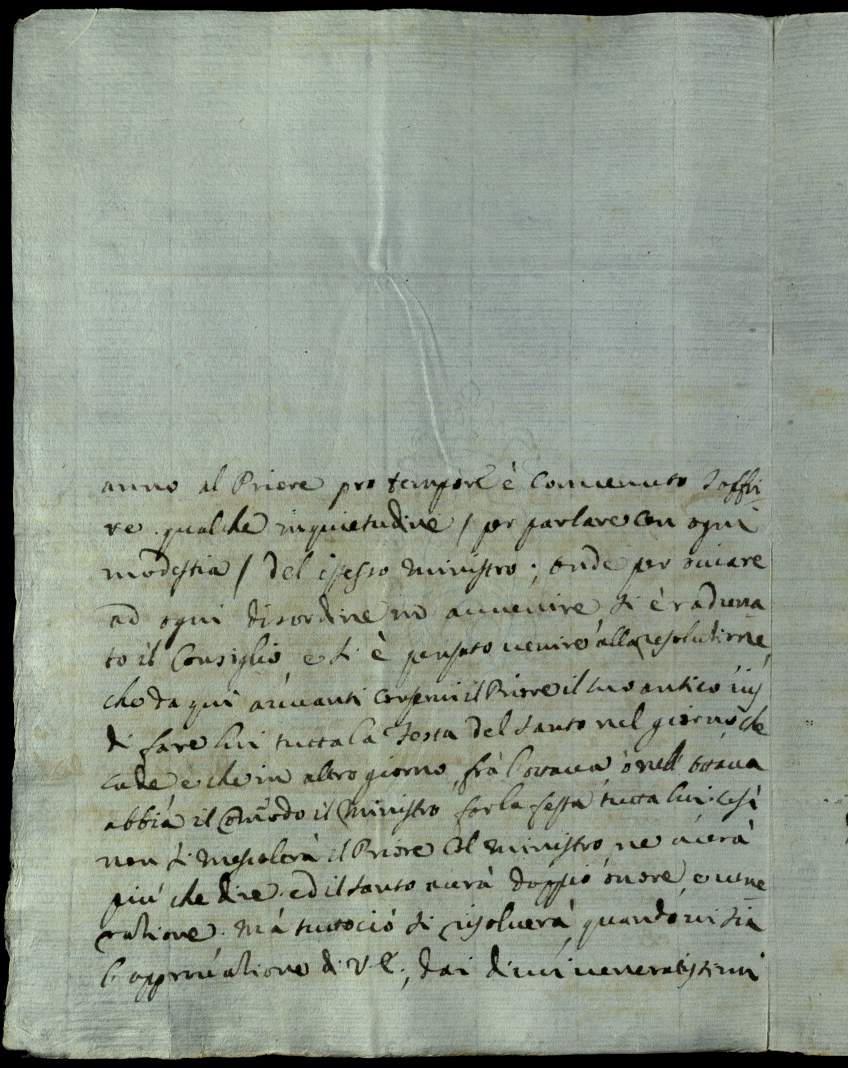 anno al Priore pro tempore è Conuenuto soffri
re qualche inquietudine / per parlare con ogni
modestia / del istesso Ministro; onde per ouiare
ad ogni disordine in auuenire si è raduna
to il Consiglio e si è pensato uenire alla resolutione,
che da qui auuanti conserui il Priore il suo antico ius
di fare lui tutta la Festa del Santo nel giorno, che
cade e che in altro giorno, frà l'ottaua ò nell' ottaua
abbia il Com̃odo il Ministro far la festa tutta lui: così
non si mescolerà il Priore col Ministro ne auerà
più che dire ed il Santo auerà doppio onore, e uene
ratione. Mà tuttociò si risoluerà, quando ui sia
l'approuatione di V. E., dai di cui ueneratissimi